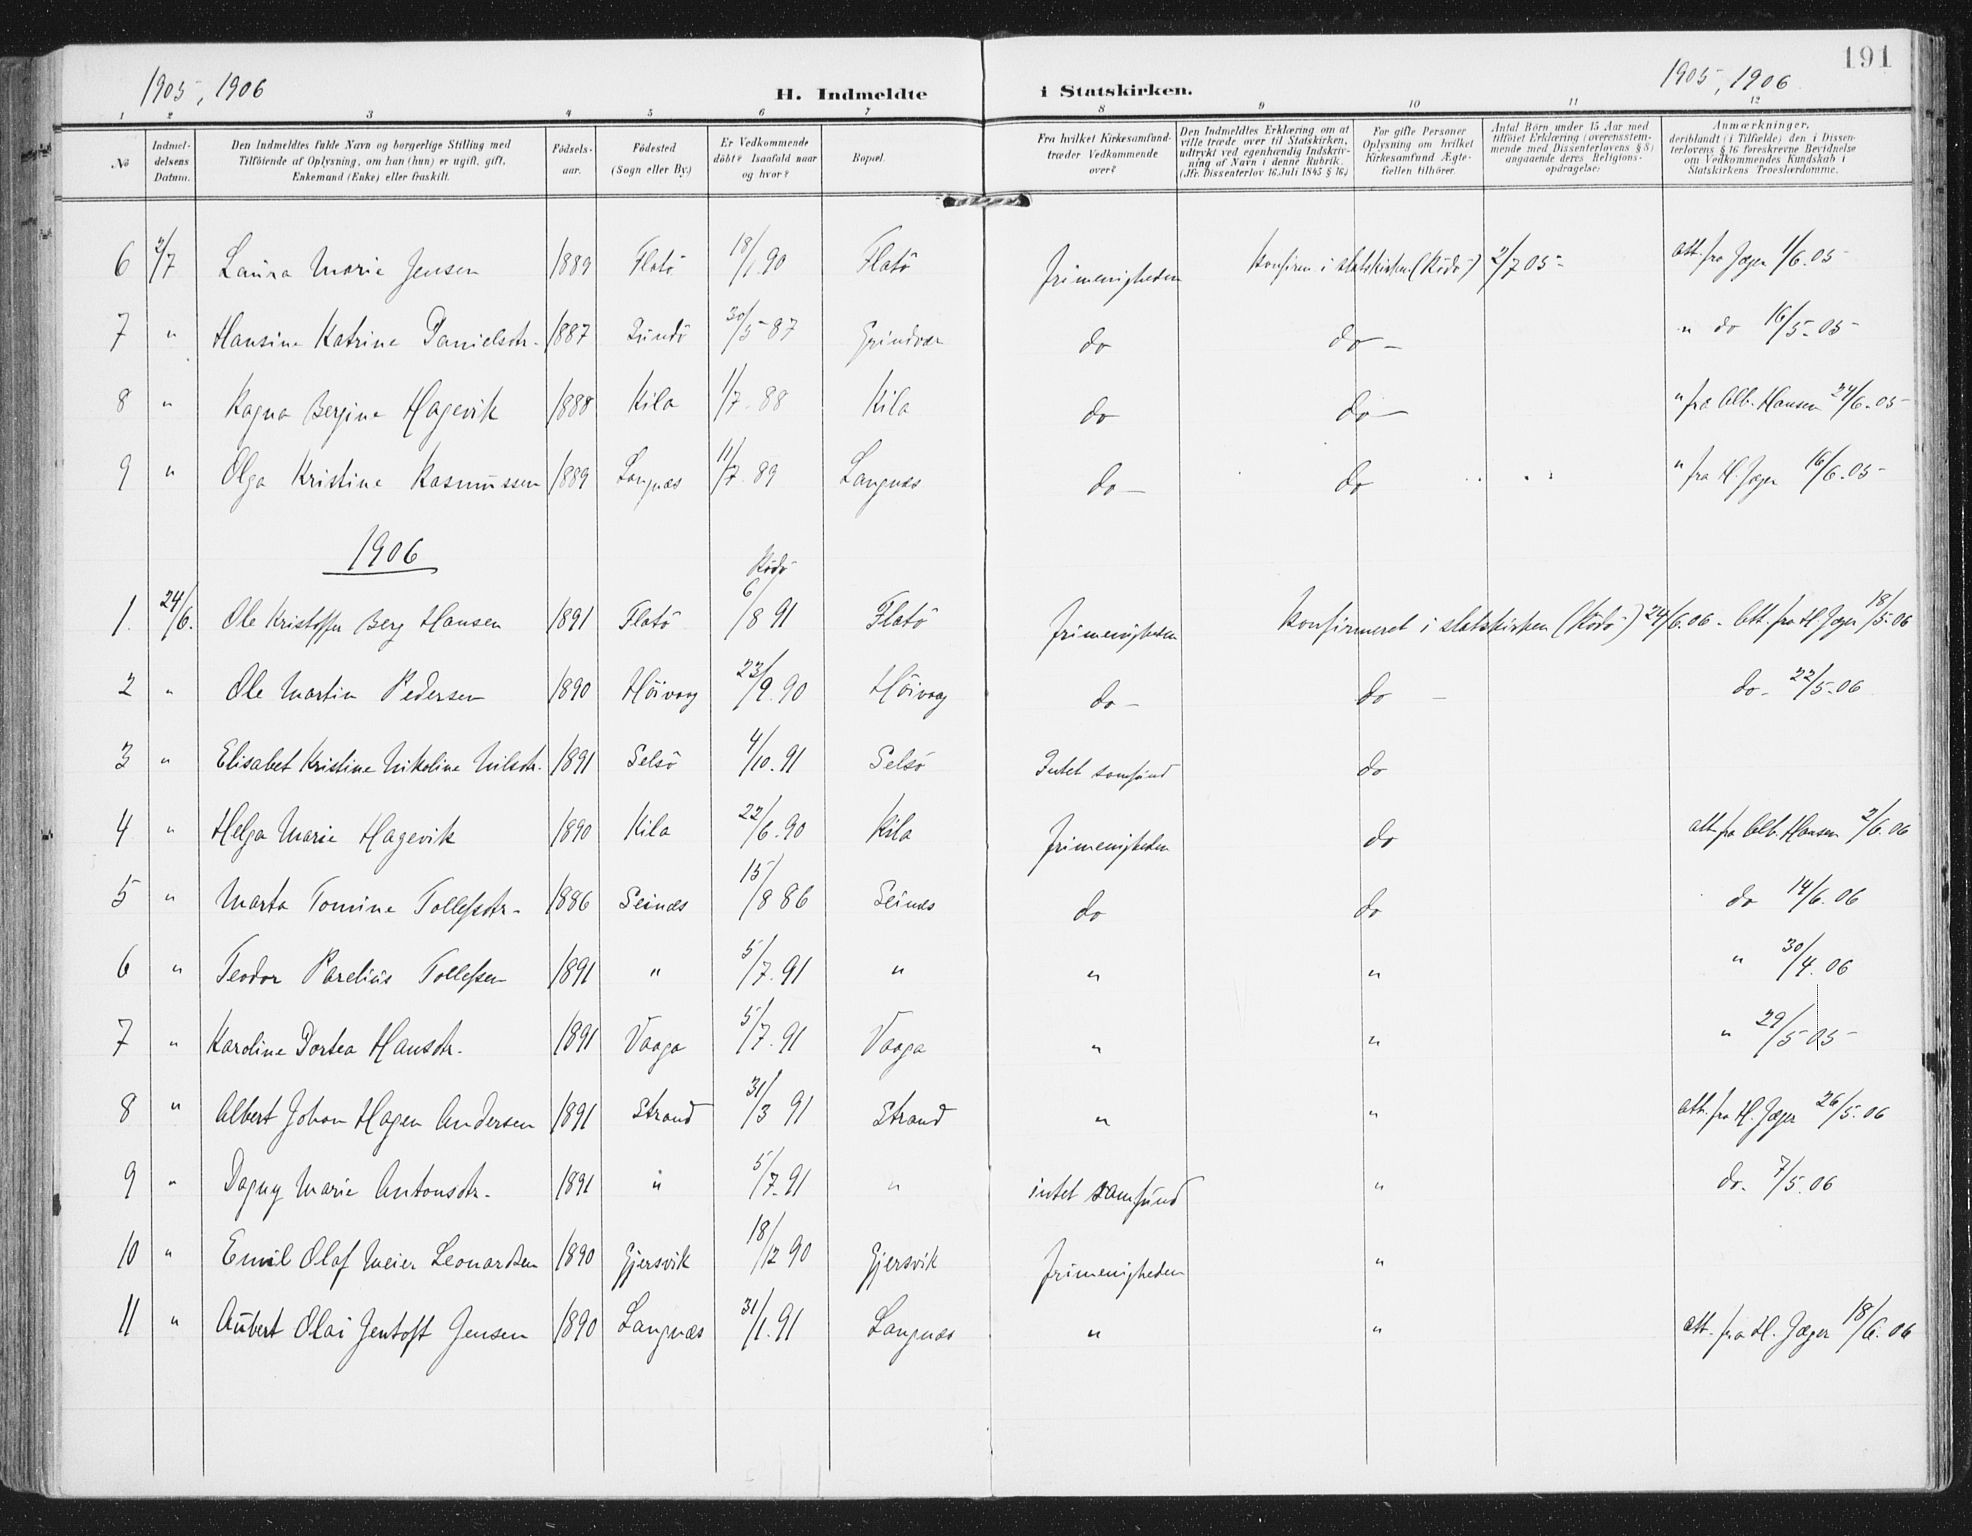 191
1905, 1906
1905, 1906
H. Indmeldte i Statskirken.
1 2 3 4 5 6 7 8 9 10 11 12
No
Indmeldelsens Datum.
Den Indmeldtes fulde Navn og borgerlige Stilling med
Tilföiende af Oplysning, om han (hun) er ugift, gift,
Enkemand (Enke) eller fraskilt.
Födselsaar.
Födested
(Sogn eller By.)
Er Vedkommende
döbt? Isaafald naar
og hvor?
Bopæl.
Fra hvilket Kirkesamfund
træder Vedkommende
over?
Den Indmeldtes Erklæring om at
ville træde over til Statskirken,
udtrykt ved egenhændig Indskrivning
af Navn i denne Rubrik.
(Jfr. Dissenterlov 16 Juli 1845 § 16.)
For gifte Personer
Oplysning om hvilket
Kirkesamfund Ægtefællen
tilhörer.
Antal Börn under 15 Aar med
tilföiet Erklæring (overensstemmende
med Dissenterlovens § 8)
angaaende deres Religionsopdragelse:
Anmærkninger,
deriblandt (i Tilfælde) den i Dissenterlovens
§ 16 foreskrevne Bevidnelse
om Vedkommendes Kundskab i
Statskirkens Troeslærdomme.
6 2/7 Laura Marie Jensen 1889 Flatö 18/1.90 Flatö frimenigheden Konfirm. i statskirken (Rödö) 2/7 05 att. fra Jæger 1/6.05
7 " Hansine Katrine Danielsdtr. 1887 Sundö 30/5 87 Grindvær do do " do 16/5.05
8 " Ragna Bergine Hagevik 1888 Kila 1/7.88 Kila do do " fra Alb. Hansen 24/6.05
9 " Olga Kristine Rasmussen 1889 Langnæs 11/7.89 Langnæs do do " fra H. Jæger 16/6.05
1906
Rödö
1. 24/6. Ole Kristoffer Berg Hansen 1891 Flatö 6/8 91 Flatö frimenigheden Konfirmeret i statskirken (Rödö) 24/6.06. Att. fra H. Jæger 18/5.06
2 " Ole Martin Pedersen 1890 Höivaag 23/9.90 Höivaag do do do 22/5.06
3 " Elisabet Kristine Nikoline Nilsdtr. 1891 Selsö 4/10.91 Selsö Intet samfund do
4 " Helga Marie Hagevik 1890 Kila 22/6.90 Kila frimenigheden do att. fra Alb. Hansen 2/6.06
5 " Marta Tomine Tollefsdtr. 1886 Seinæs 15/8 86 Seinæs do do do 14/6.06
6 " Teodor Parelius Tollefsen 1891 " 5/7.91 " " " " 30/4.06
7 " Karoline Dortea Hansdtr. 1891 Vaaga 5/7.91 Vaaga " " " 29/5 05
8 " Albert Johan Hagen Andersen 1891 Strand 31/3 91 Strand " " att. fra H. Jæger 26/5.06
9 " Dagny Marie Antonsdtr. 1891 " 5/7.91 " intet samfund " do. 7/5.06
10 " Emil Olaf Meier Leonardsen 1890 Gjersvik 18/12 90 Gjersvik frimenigheden "
11 " Aubert Olai Jentoft Jensen 1890 Langnæs 31/1.91 Langnæs " " att. fra H. Jæger 18/6.06